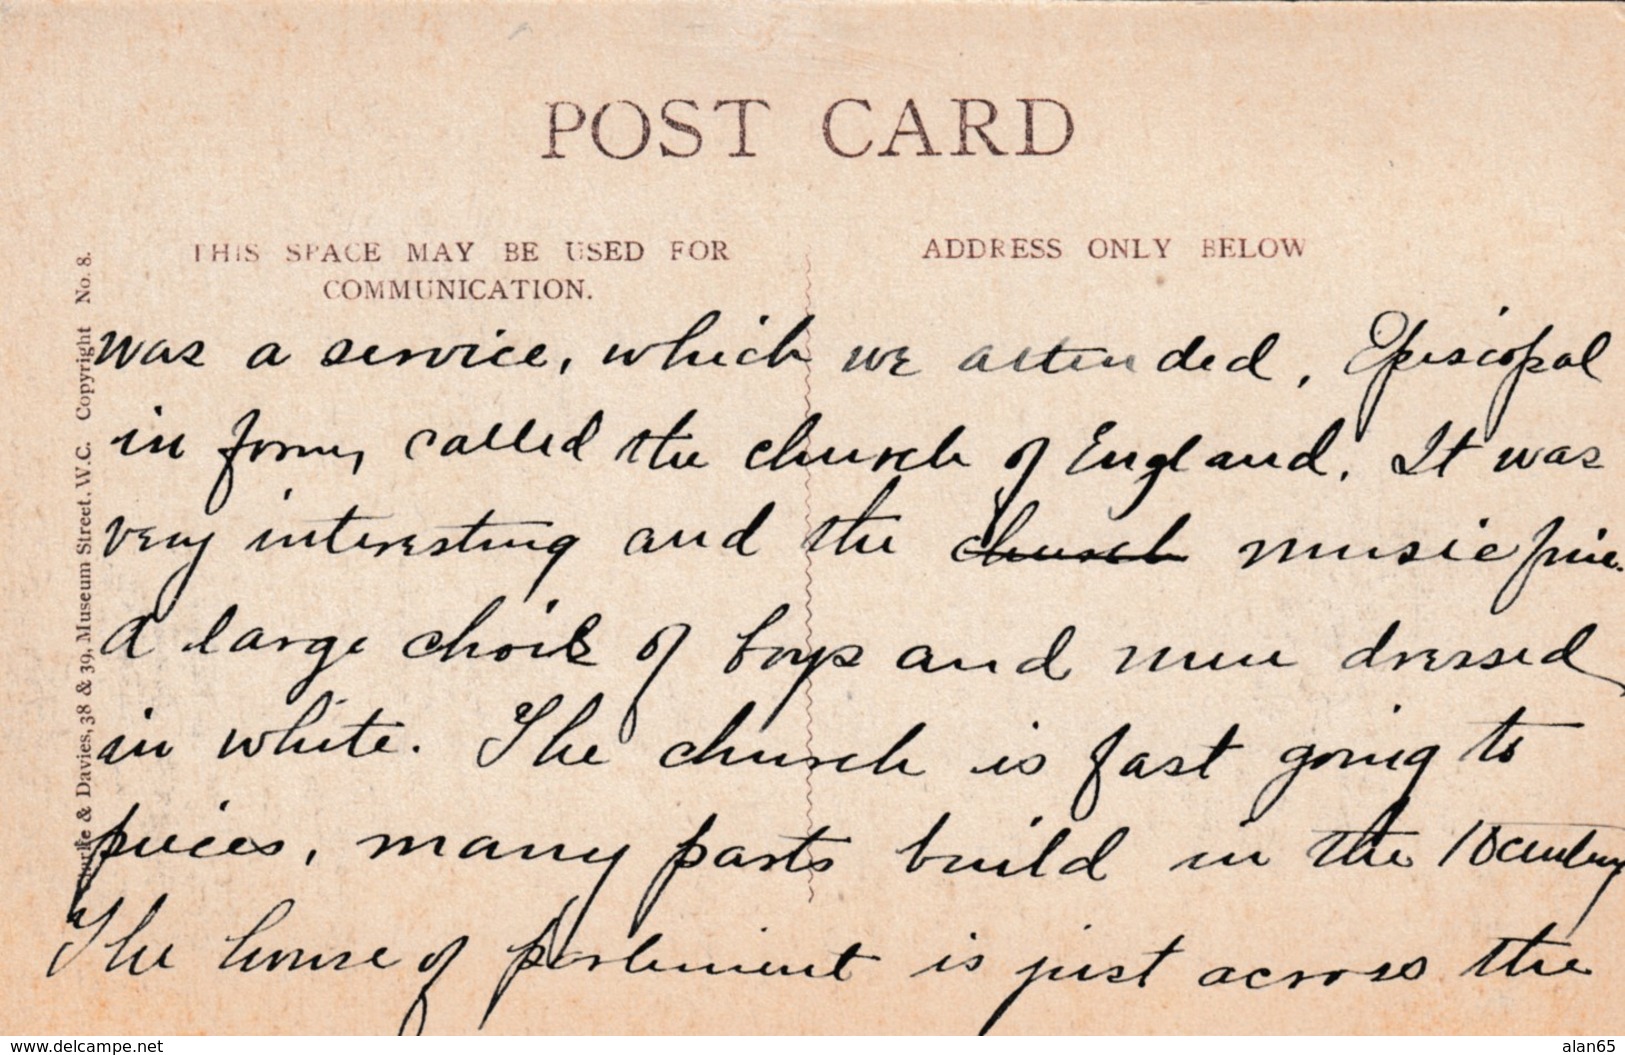 POST CARD
THIS SPACE MAY BE USED FOR
COMMUNICATION.
ADDRESS ONLY BELOW
& Davies, 38 & 39, Museum Street, W.C. Copyright No. 8.
was a service, which we attended, Episcopal
in form, called the church of England. It was
very interesting and the church music fine.
A large choir of boys and men dressed
in white. The church is fast going to
pieces, many parts build in the century
The house of parliment is just across the
www.delcampe.net
alan65